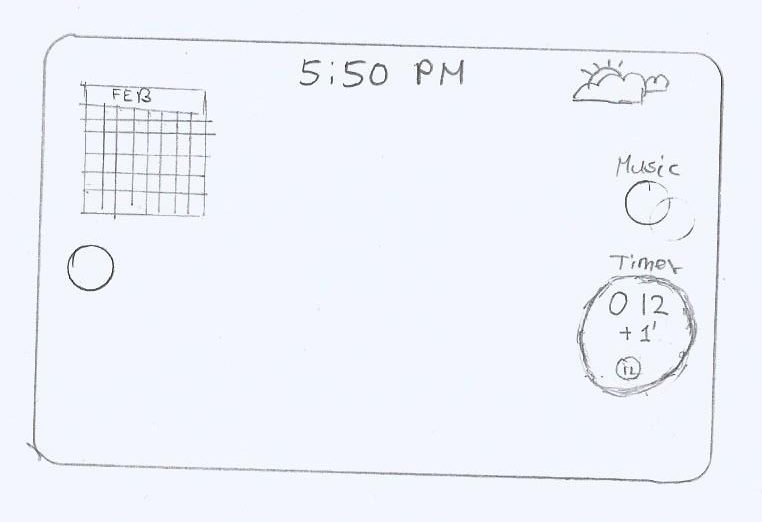 5:50 PM
FEB
Music
Timer
0 12
+ 1'